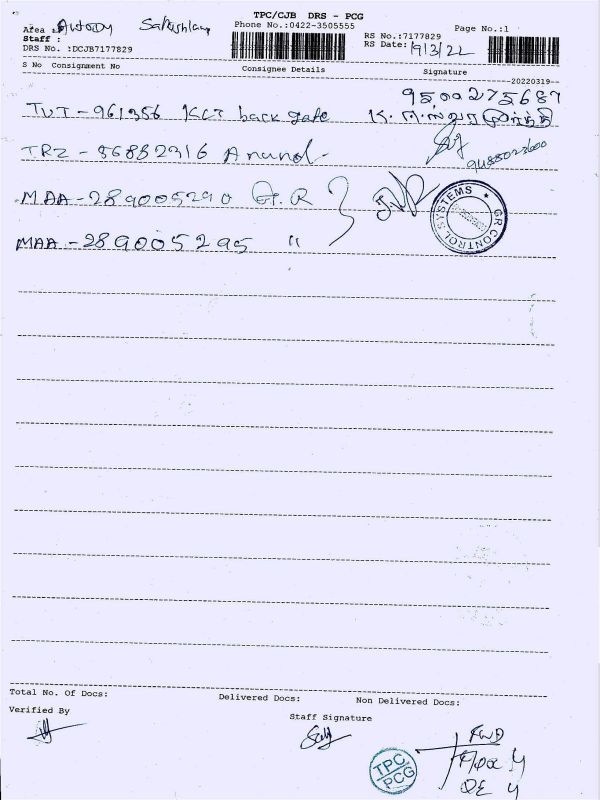 TPC/CJB DRS - PCG
Phone No.:0422-3505555
Page No.:1
Area :
Staff :
DRS No. :DCJB7177829
RS No.:7177829
RS Date: 19/3/22
S No Consignment No
Consignee Details
Signature
20220319
9500275687
TUT - 961356 KCT back gate
TRZ - 56882316 Anand
9488023600
MAA - 289005290 G.R
MAA - 289005295 "
GR CONTROL SYSTEMS ★
Total No. Of Docs:
Delivered Docs:
Non Delivered Docs:
Verified By
Staff Signature
TPC
PCG